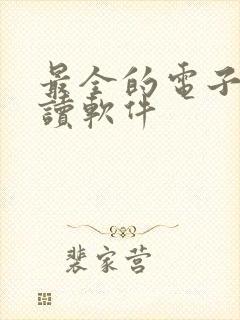 最全的電子
讀軟件
裴家营